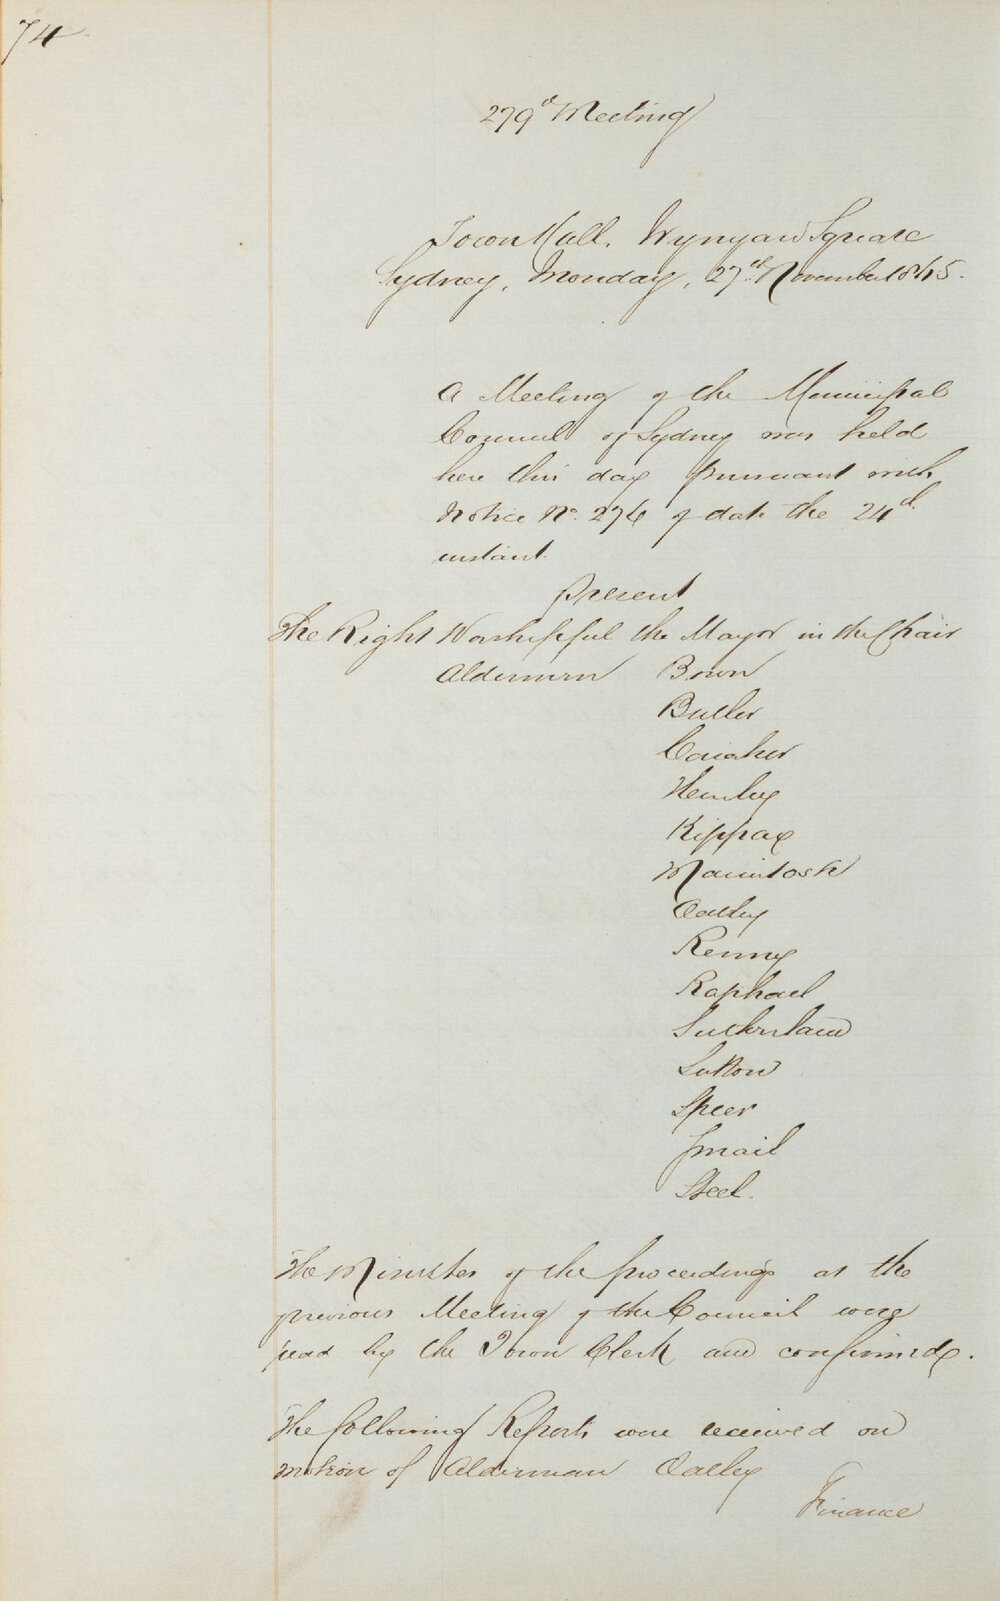 74
279th Meeting
Town Hall. Wynyard Square
Sydney, Monday, 27th November 1865.
A Meeting of the Municipal
Council of Sydney was held
here this day pursuant with
Notice No. 276 of date the 24th
instant.
Present
The Right Worshipful the Mayor in the Chair
Aldermen Bown
Butler
Caraher
Hurley
Kippax
Macintosh
Oatley
Renny
Raphael
Sutherland
Sutton
Speer
Smail
Steel.
The Minutes of the proceedings at the
previous Meeting of the Council were
read by the Town Clerk and confirmed.
The following Reports were received on
motion of Alderman Oatley
Finance